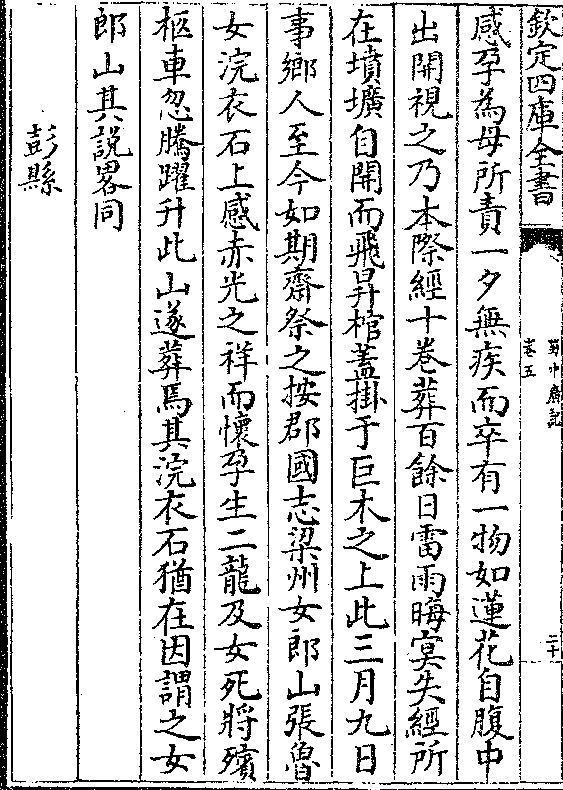 欽定四庫全書
蜀中廣記
卷五
二十
感孕為母所責一夕無疾而卒有一物如蓮花自腹中
出開視之乃本際經十卷葬百餘日雷雨晦㝠失經所
在墳壙自開而飛昇棺葢掛于巨木之上此三月九日
事鄉人至今如期齋祭之按郡國志梁州女郎山張魯
女浣衣石上感赤光之祥而懷孕生二龍及女死將殯
柩車忽騰躍升此山遂葬焉其浣衣石猶在因謂之女
郎山其說畧同
彭縣